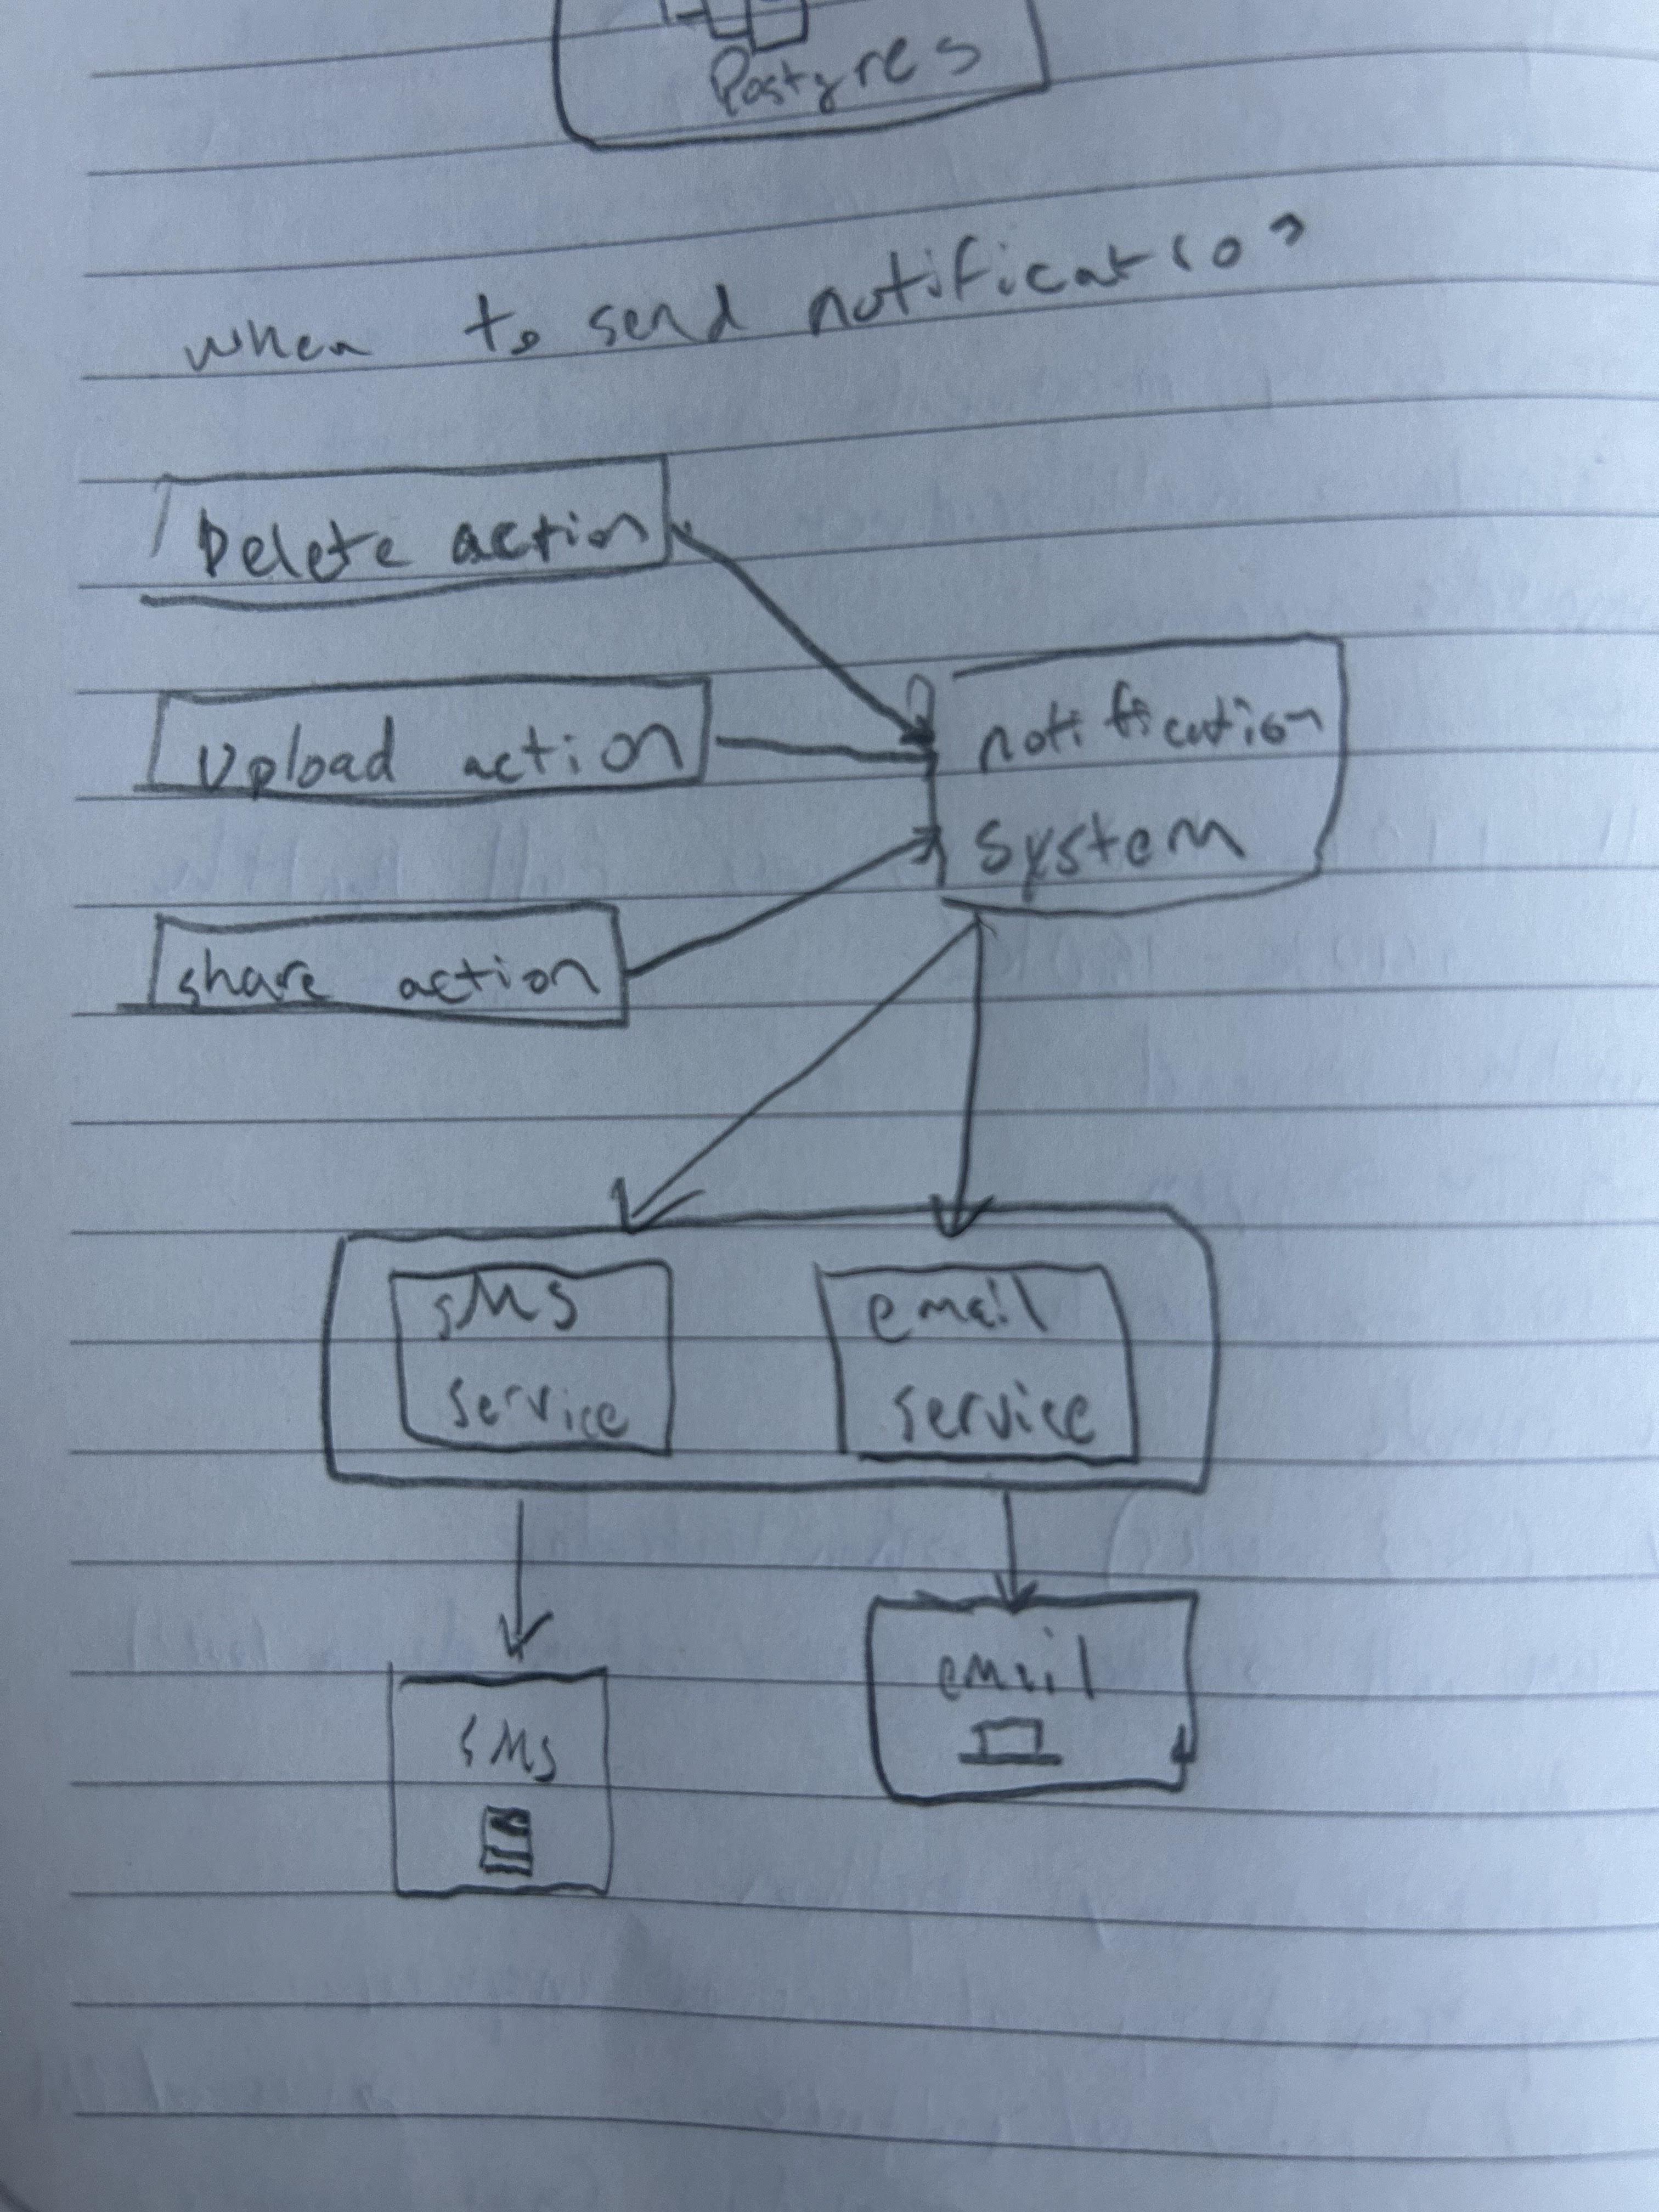 Postgres
when to send notification
Delete action
Upload action
share action
notification
system
SMS
service
email
service
SMS
email